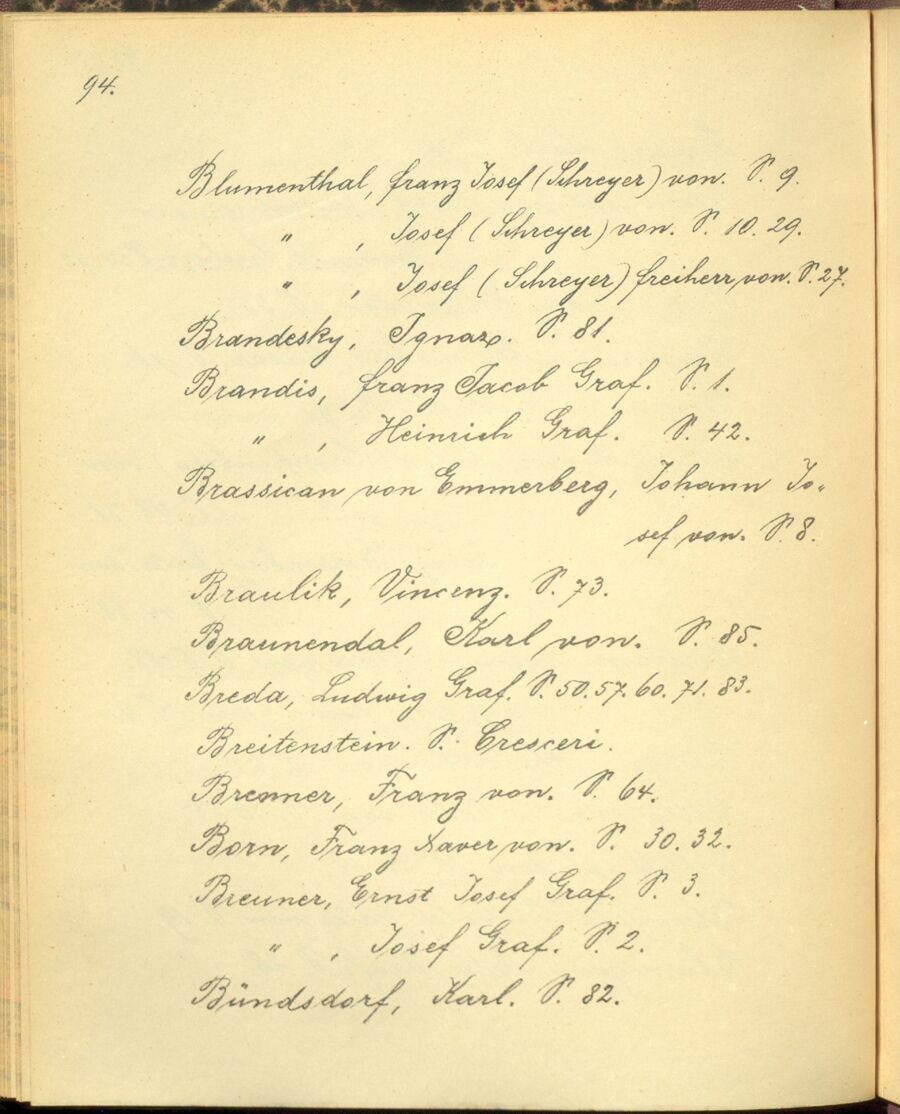 94.
Blumenthal, franz Josef (Schreyer) von. S. 9.
" , Josef (Schreyer) von. S. 10. 29.
" , Josef (Schreyer) freiherr von. S. 27.
Brandesky, Ignaz. S. 81.
Brandis, franz Jacob Graf. S. 1.
" , Heinrich Graf. S. 42.
Brassican von Emmerberg, Johann Jo-
sef von. S. 8.
Braulik, Vincenz. S. 73.
Braunendal, Karl von. S. 85.
Breda, Ludwig Graf. S. 50. 57. 60. 71. 83.
Breitenstein. S. Cresceri.
Brenner, Franz von. S. 64.
Born, Franz Xaver von. S. 30. 32.
Breuner, Ernst Josef Graf. S. 3.
" , Josef Graf. S. 2.
Bündsdorf, Karl. S. 82.